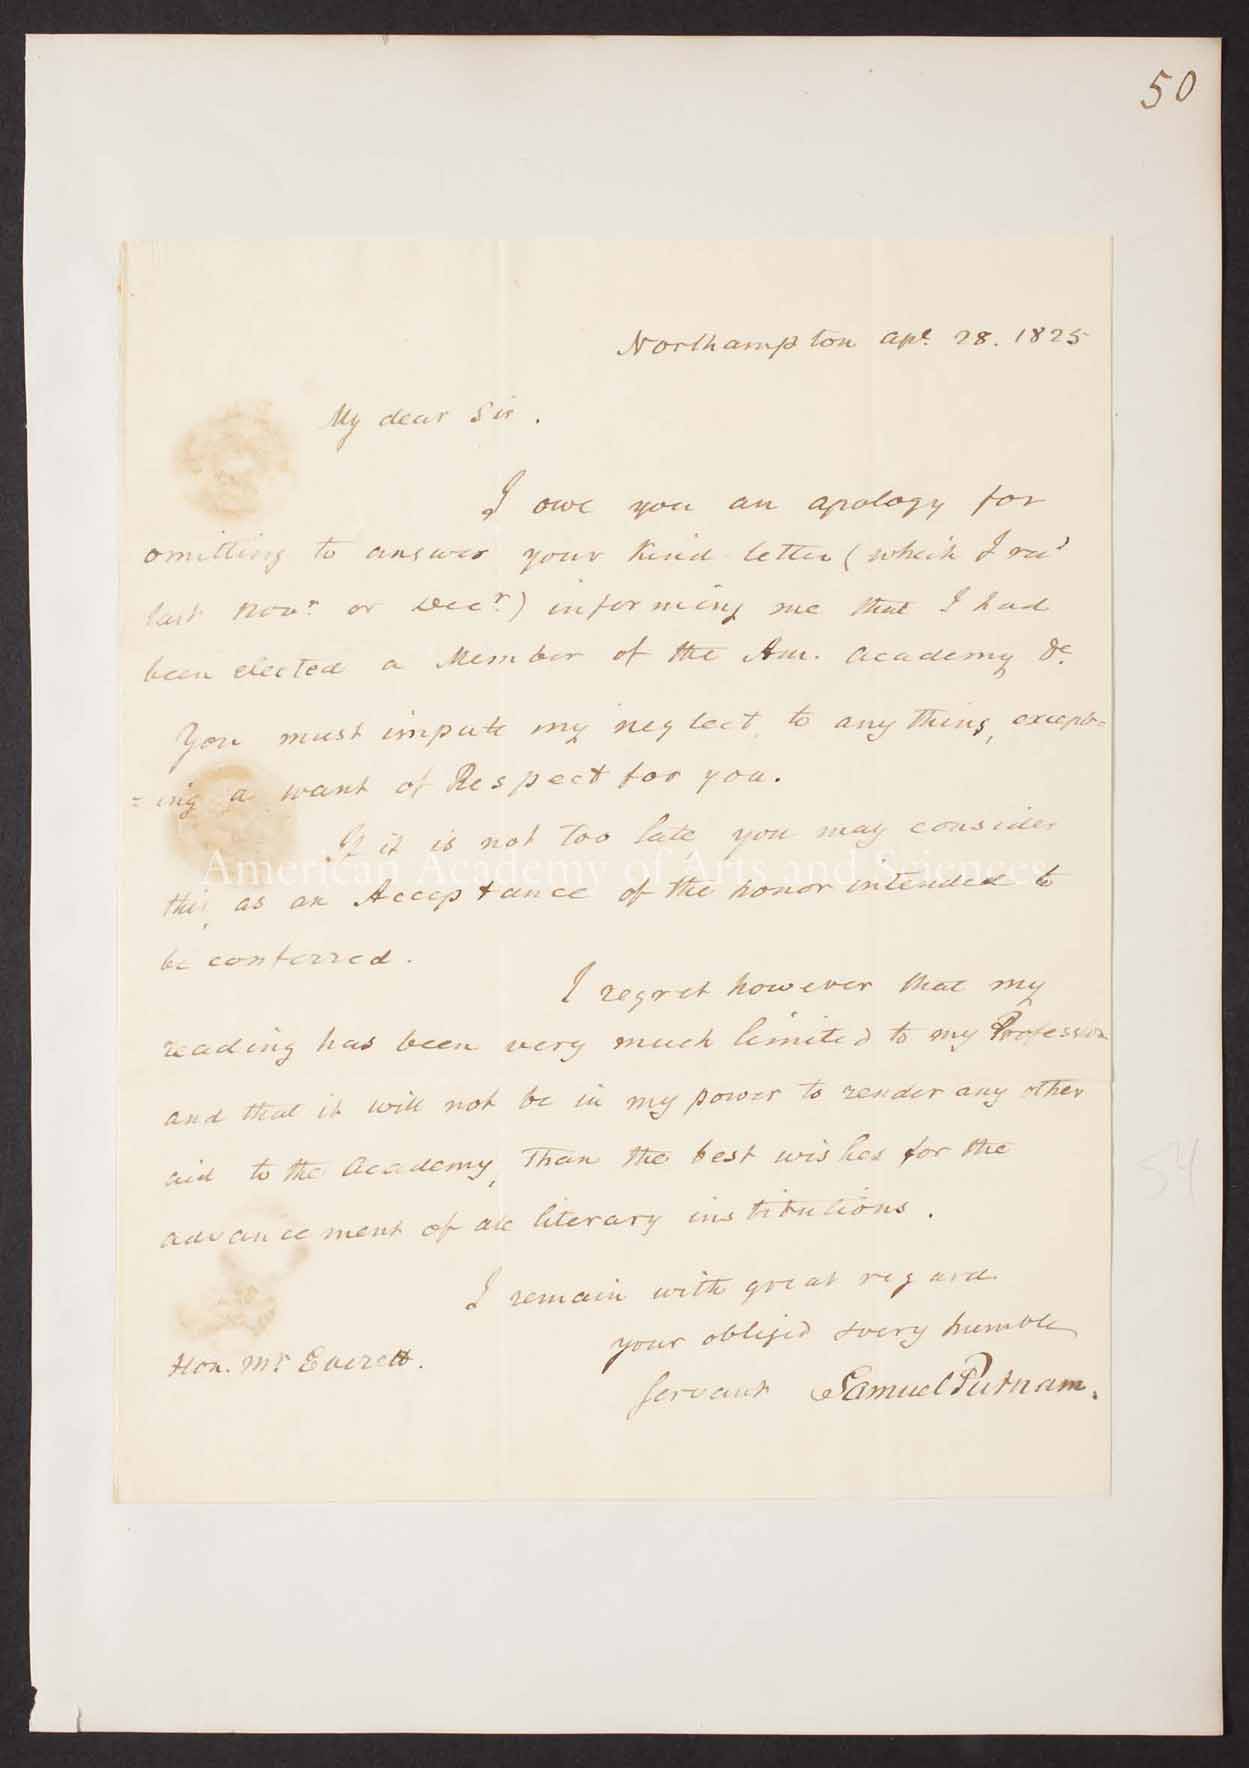 50
Northampton Apl. 28. 1825
My dear Sir.
I owe you an apology for
omitting to answer your kind letter (which I recd
last Novr. or Decr.) informing me that I had
been elected a Member of the Am. Academy &c.
You must impute my neglect, to any thing, except=
=ing a want of Respect for you.
If it is not too late, you may consider
American Academy of Arts and Sciences
this, as an Acceptance of the honor intended to
be conferred.
I regret however that my
reading has been very much limited to my Profession
and that it will not be in my power to render any other
aid to the Academy, than the best wishes for the
54
advancement of all literary institutions.
I remain with great regard
your obliged & very humble
Hon. Mr. Everett.
servant Samuel Putnam.